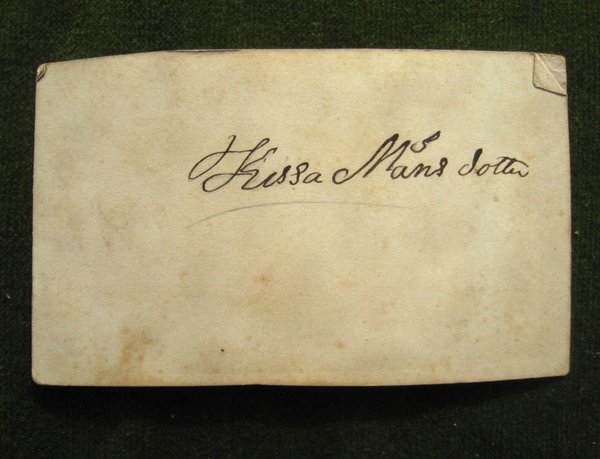 Kissa Måns dotter